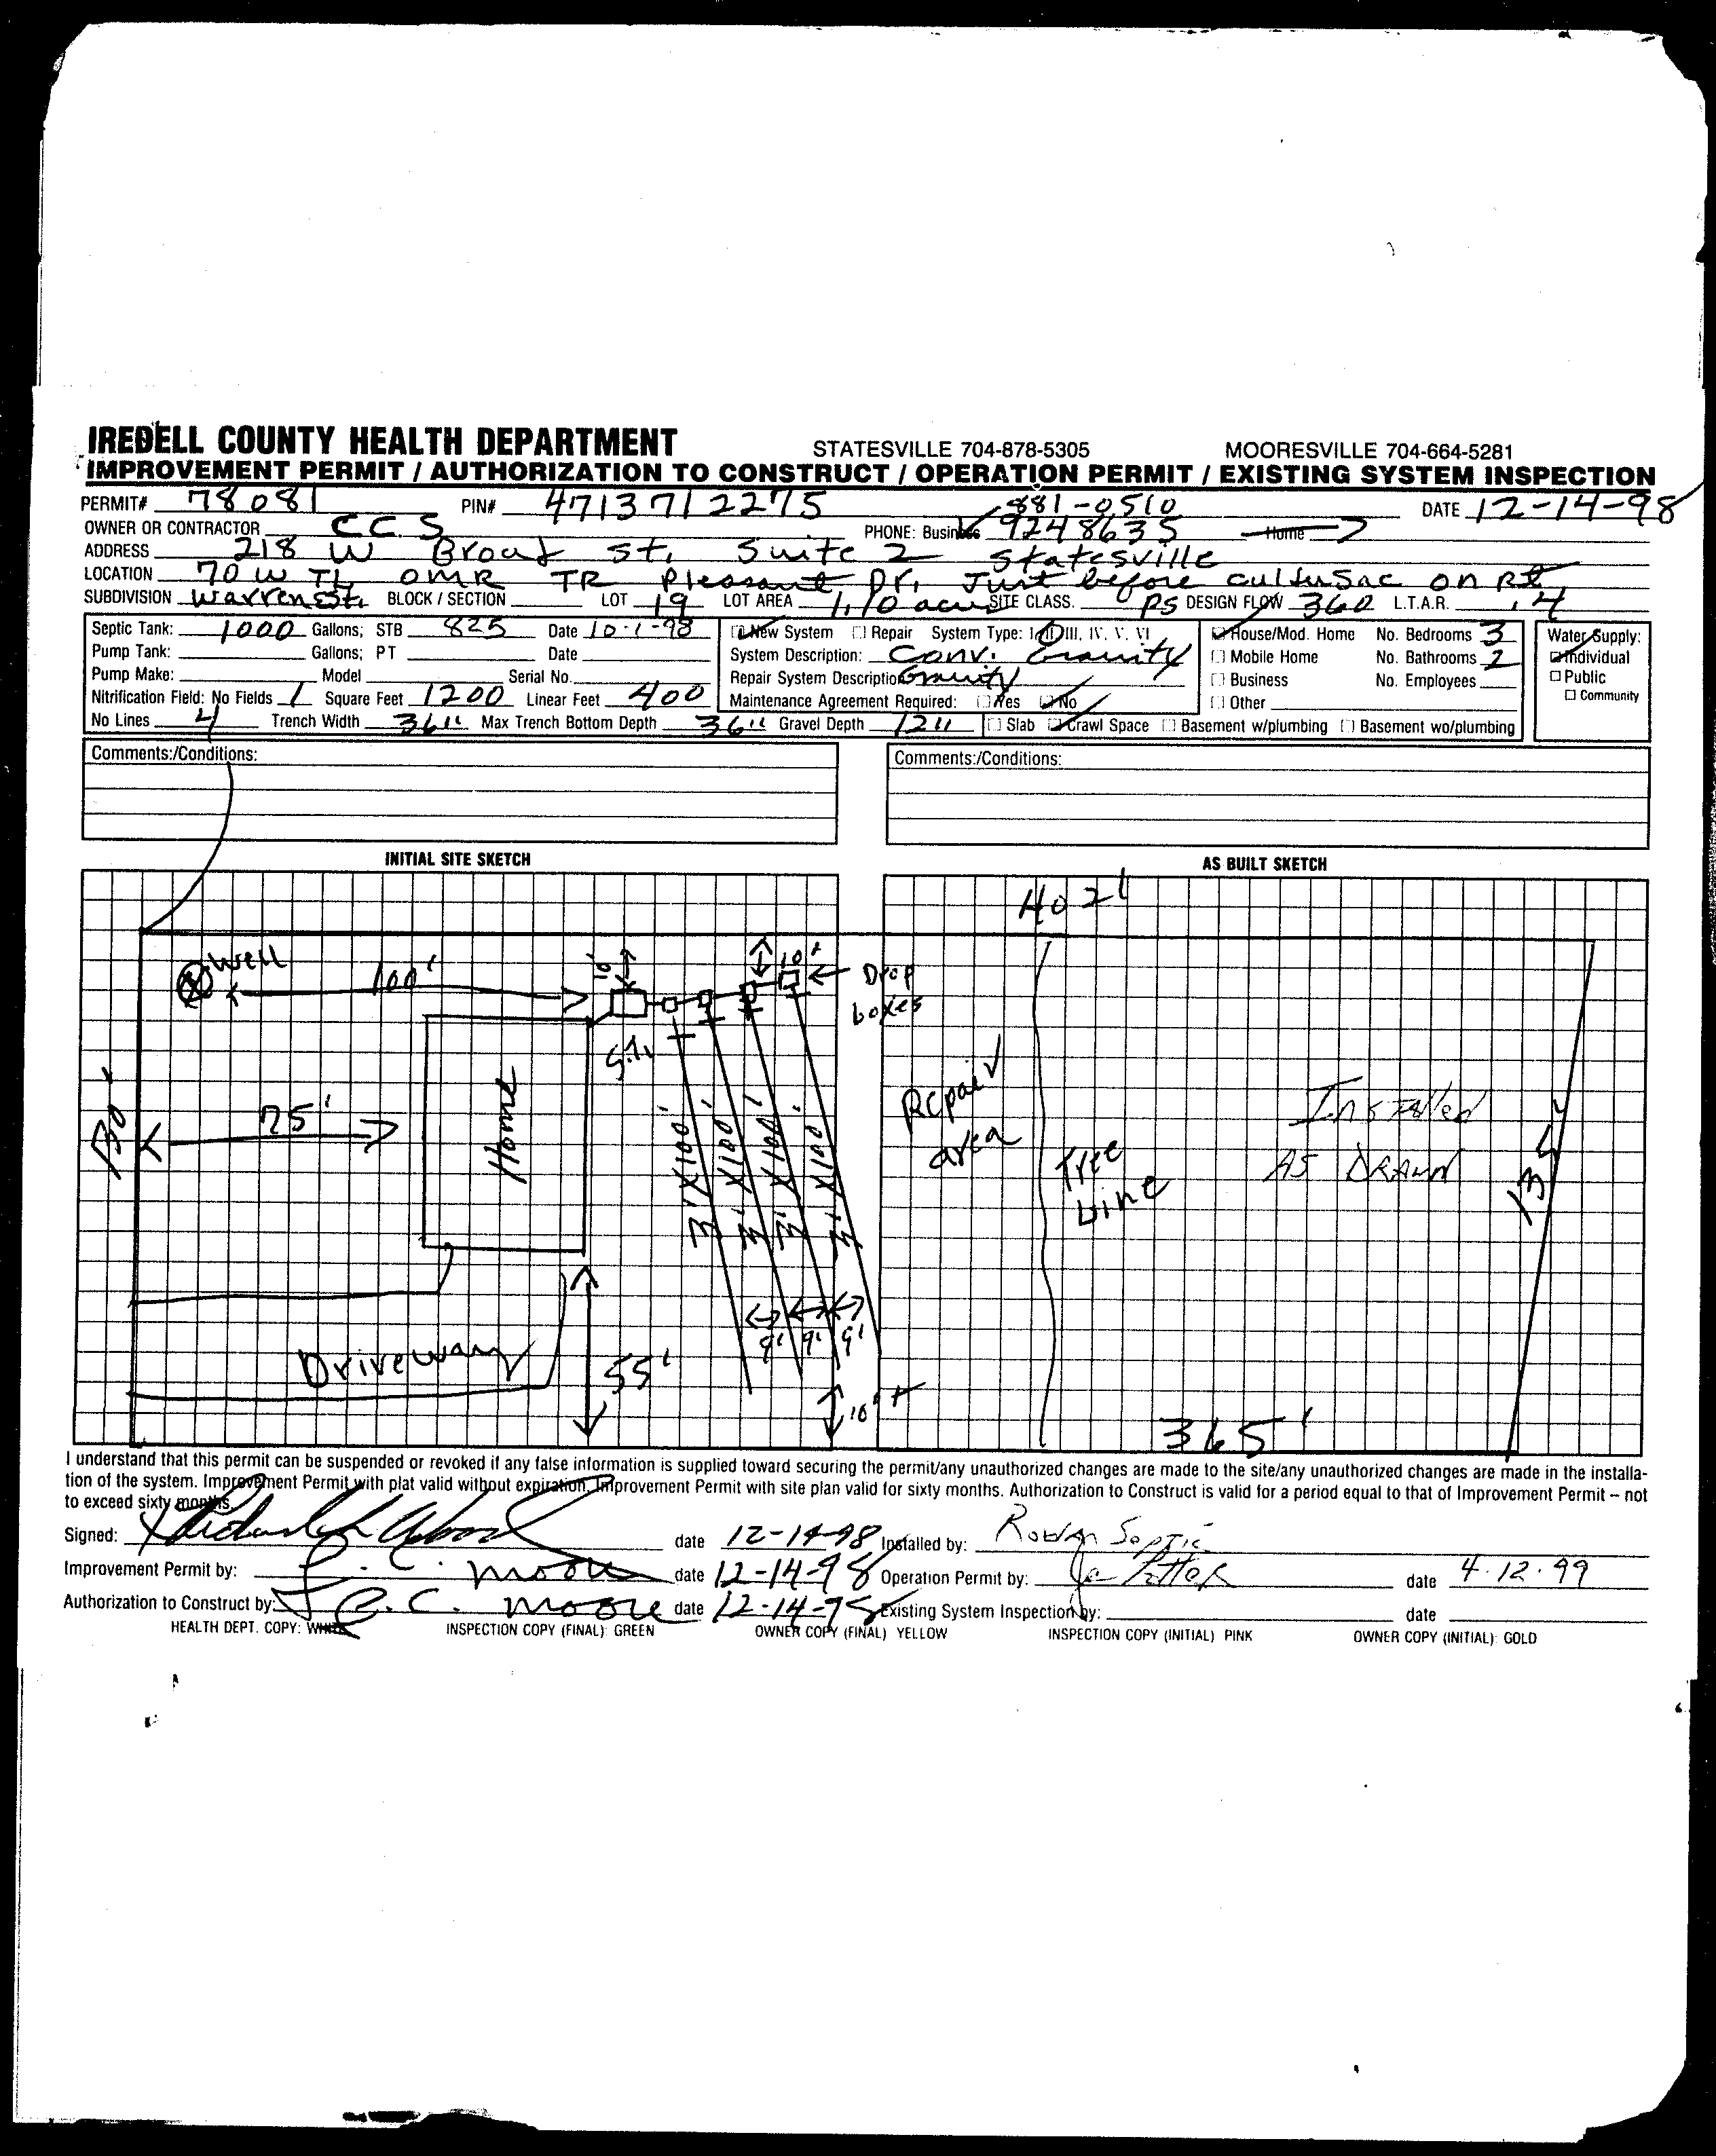 IREDELL COUNTY HEALTH DEPARTMENT STATESVILLE 704-878-5305 MOORESVILLE 704-664-5281
IMPROVEMENT PERMIT / AUTHORIZATION TO CONSTRUCT / OPERATION PERMIT / EXISTING SYSTEM INSPECTION
PERMIT# 78081 PIN# 4713712275 881-0510 DATE 12-14-98
OWNER OR CONTRACTOR C.C.S PHONE: Business 9248635 Home
ADDRESS 218 W Broad St. Suite 2 Statesville
LOCATION 70 W TL OMR TR Pleasant Dr. Just before culdusac on Rt
SUBDIVISION Warren Est. BLOCK / SECTION LOT 19 LOT AREA 1.10 acres SITE CLASS. PS DESIGN FLOW 360 L.T.A.R. .4
Septic Tank: 1000 Gallons; STB 825 Date 10-1-98 New System Repair System Type: I, II, III, IV, V, VI House/Mod. Home No. Bedrooms 3 Water Supply:
Pump Tank: Gallons; PT Date System Description: Conv. Gravity Mobile Home No. Bathrooms 2 Individual
Pump Make: Model Serial No. Repair System Description Gravity Business No. Employees Public
Nitrification Field: No Fields 1 Square Feet 1200 Linear Feet 400 Maintenance Agreement Required: Yes No Other Community
No Lines 4 Trench Width 36" Max Trench Bottom Depth 36" Gravel Depth 12" Slab Crawl Space Basement w/plumbing Basement wo/plumbing
Comments:/Conditions: Comments:/Conditions:
INITIAL SITE SKETCH AS BUILT SKETCH
402'
Well 100' 10' 10' Drop
boxes
S.T.
130' 75' Home 3'X100' 3'X100' 3'X100' 3'X100'
Repair
area
Tree
Line
Installed
AS DRAWN
135'
9' 9' 9'
Driveway 55' 10'+
365'
I understand that this permit can be suspended or revoked if any false information is supplied toward securing the permit/any unauthorized changes are made to the site/any unauthorized changes are made in the installa-
tion of the system. Improvement Permit with plat valid without expiration. Improvement Permit with site plan valid for sixty months. Authorization to Construct is valid for a period equal to that of Improvement Permit – not
to exceed sixty months.
Signed: date 12-14-98 Installed by: Rowan Septic
Improvement Permit by: C. Moore date 12-14-98 Operation Permit by: date 4.12.99
Authorization to Construct by: C. Moore date 12-14-98 Existing System Inspection by: date
HEALTH DEPT. COPY: WHITE INSPECTION COPY (FINAL): GREEN OWNER COPY (FINAL) YELLOW INSPECTION COPY (INITIAL) PINK OWNER COPY (INITIAL): GOLD